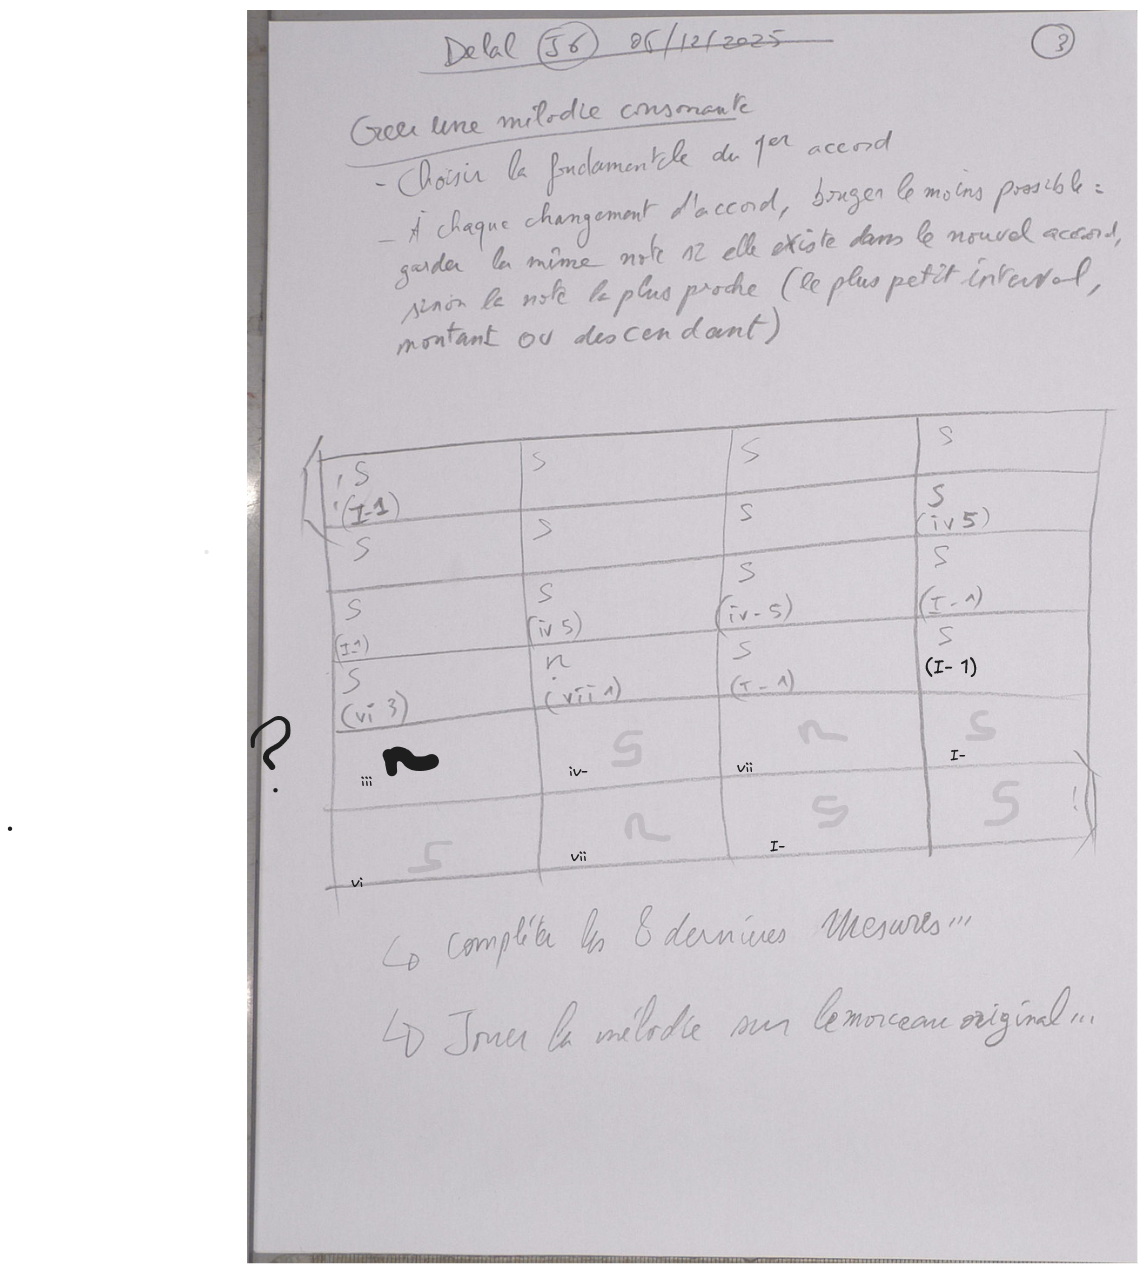 Delal J6 05/12/2025 3
Créer une mélodie consonante
- Choisir la fondamentale du 1er accord
- À chaque changement d'accord, bouger le moins possible :
garder la même note si elle existe dans le nouvel accord,
sinon la note la plus proche (le plus petit interval,
montant ou descendant)
S S S S
(I-1)
S S S S
(iv 5)
S S S S
(I-1) (iv 5) (iv-5) (I-1)
S n S S
(vi 3) (vii 1) (I-1) (I-1)
? n S n S
iii iv- vii I-
S n S S !
vi vii I-
↳ compléter les 8 dernières mesures...
↳ Jouer la mélodie sur le morceau original...